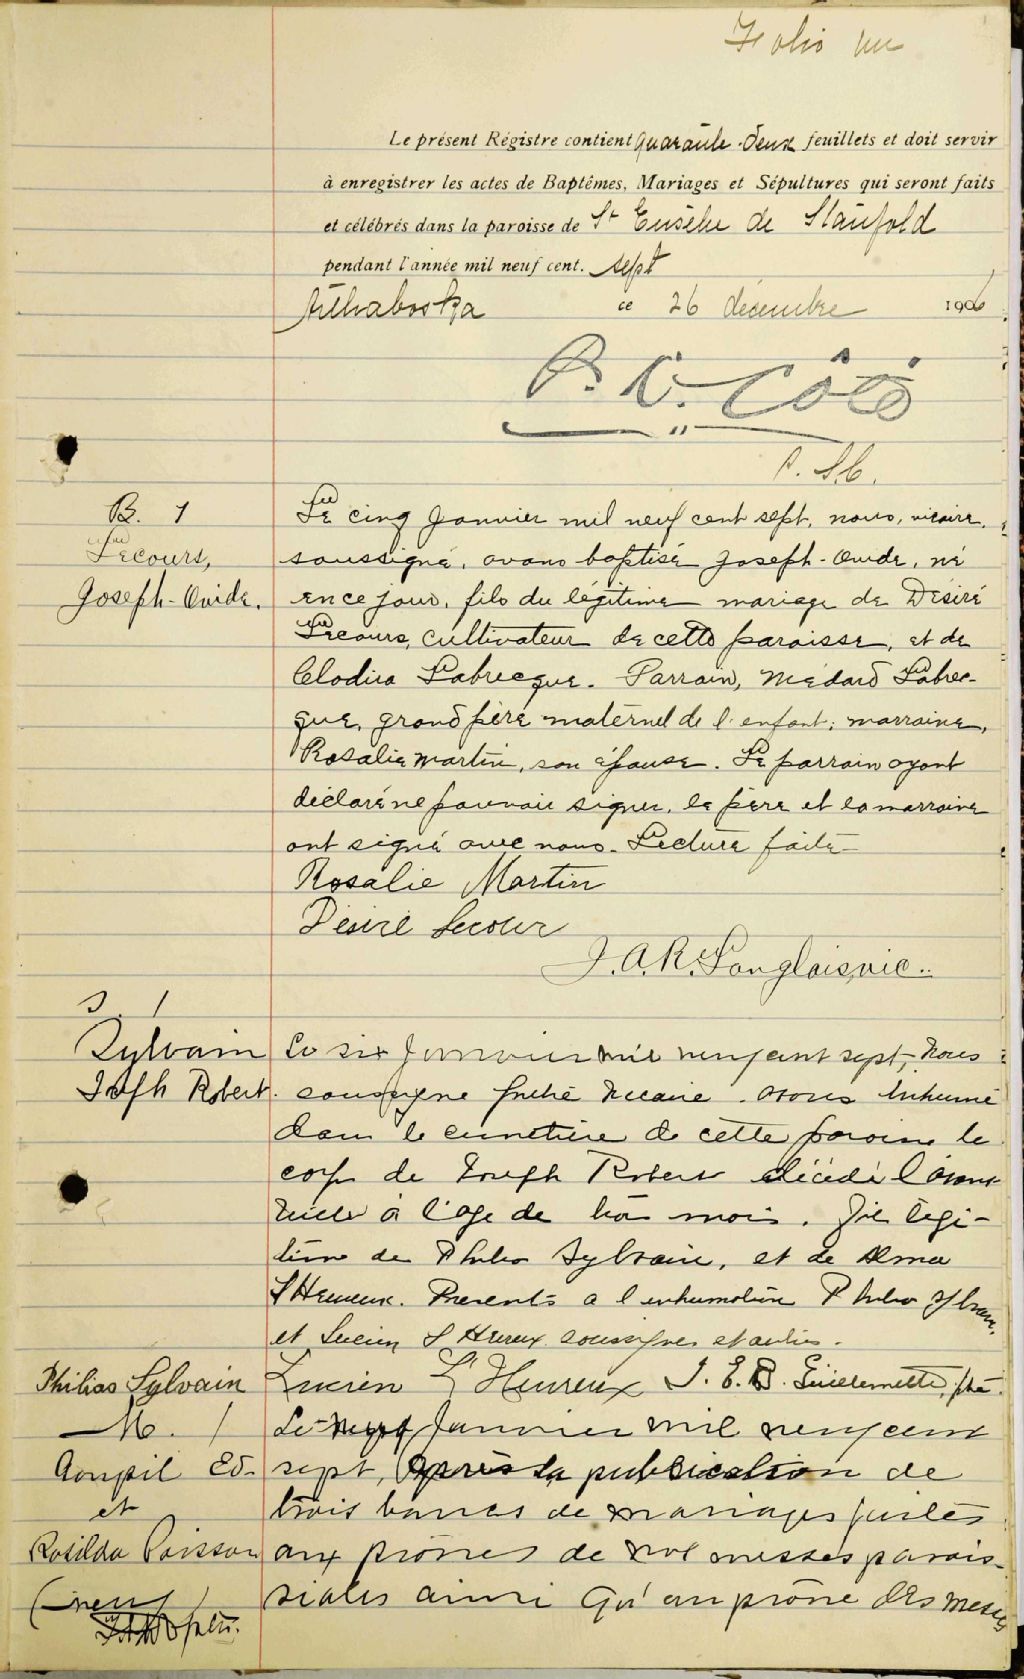 Folio un
Le présent Régistre contient quarante-deux feuillets et doit servir
à enregistrer les actes de Baptêmes, Mariages et Sépultures qui seront faits
et célébrés dans la paroisse de St Eusèbe de Stanfold
pendant l'année mil neuf cent. sept
Arthabaska ce 26 décembre 1906
P. C. Côté
P. S. C.
B. 1
Lecours,
Joseph-Ovide.
Le cinq Janvier mil neuf cent sept, nous, vicaire,
soussigné, avons baptisé Joseph-Ovide, né
en ce jour, fils du légitime mariage de Désiré
Lecours, cultivateur de cette paroisse, et de
Clodira Labrecque. Parrain, Médard Labrec-
que, grand père maternel de l'enfant; marraine,
Rosalie Martin, son épouse. Le parrain ayant
déclaré ne pouvoir signer, le père et la marraine
ont signé avec nous. Lecture faite
Rosalie Martin
Désiré Lecour
J. A. R. Langlois, vic..
S. 1
Sylvain
Joseph Robert.
Le six Janvier mil neuf cent sept, Nous
soussigné prêtre vicaire avons inhumé
dans le cimetière de cette paroisse le
corps de Joseph Robert décédé l'avant
veille à l'age de trois mois. Fils légi-
time de Philias Sylvain, et de Alma
L'Heureux. Présents a l'inhumation Philias Sylvain,
et Lucien L'Heureux soussignés et autres.
Philias Sylvain Lucien L'Heureux J. E. B. Guillemette, ptre.
M. 1
Goupil Ed.
et
Rosilda Poisson
(neuf)
Le neuf Janvier mil neuf cent
sept, Après la publication de
trois bancs de mariages faites
aux prônes de nos messes parois-
siales ainsi qu'au prône des messes